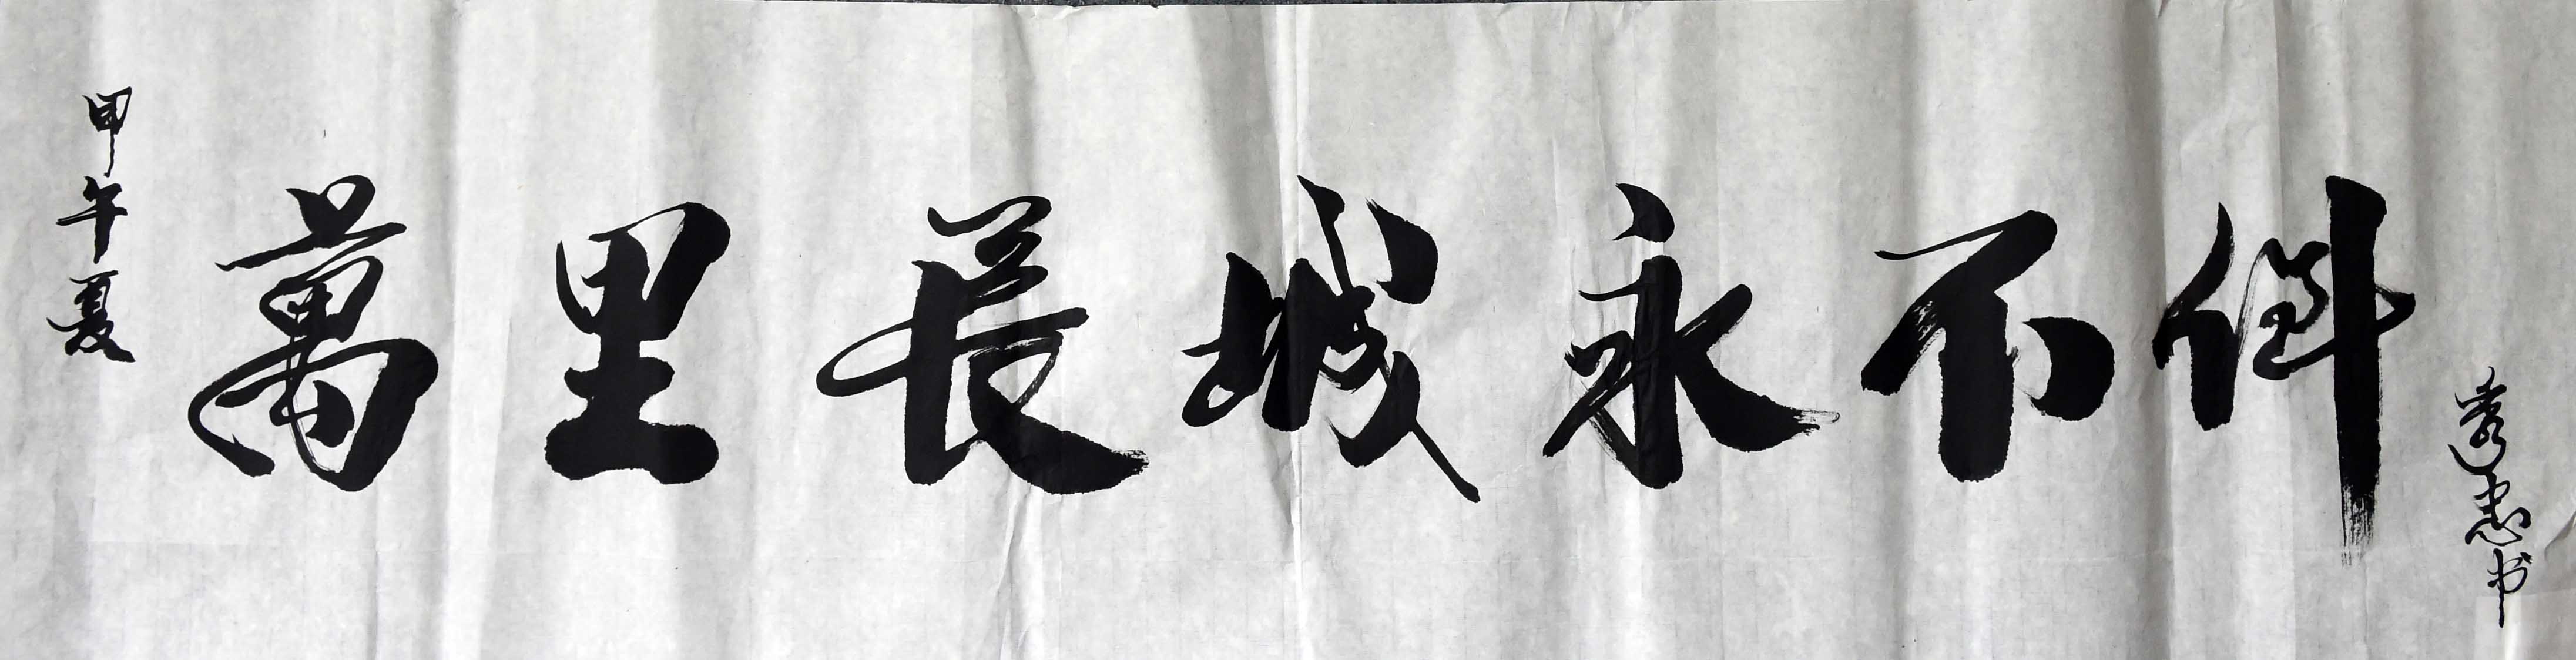 甲午夏
萬里長城永不倒
忠书